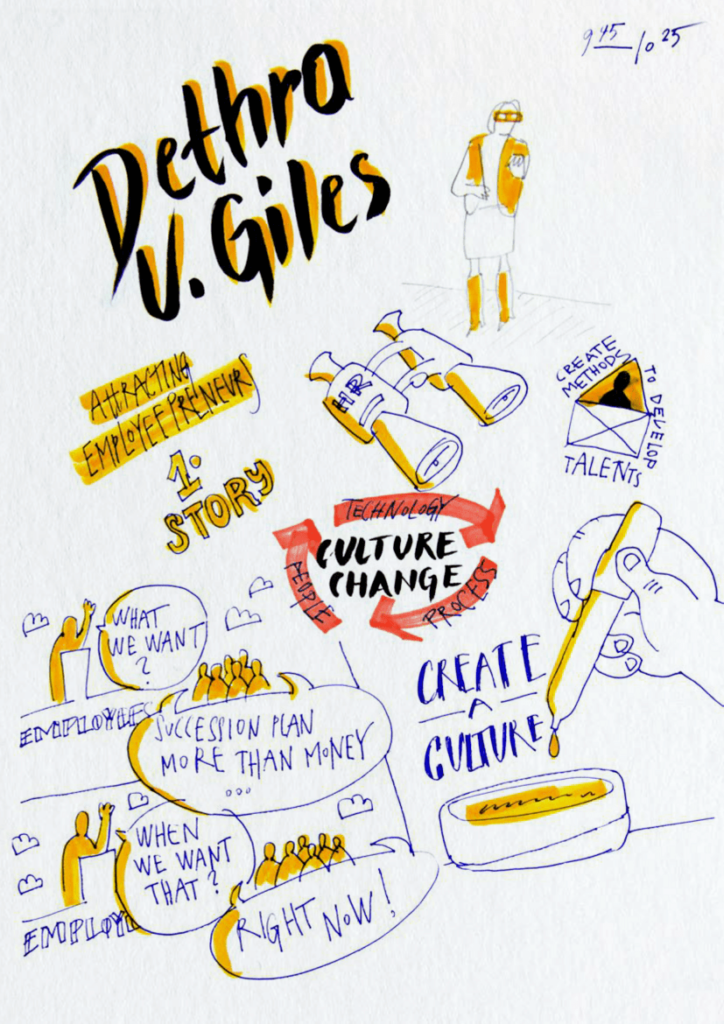 9 45 – 10 25
Dethra
V. Giles
ATTRACTING
EMPLOYEEPRENEURS
1.
STORY
HR
CREATE
METHODS
TO DEVELOP
TALENTS
TECHNOLOGY
CULTURE
CHANGE
PEOPLE
PROCESS
WHAT
WE WANT
?
EMPLOYEES
SUCCESSION PLAN
MORE THAN MONEY
...
CREATE
A
CULTURE
WHEN
WE WANT
THAT?
EMPLOYE
RIGHT NOW!